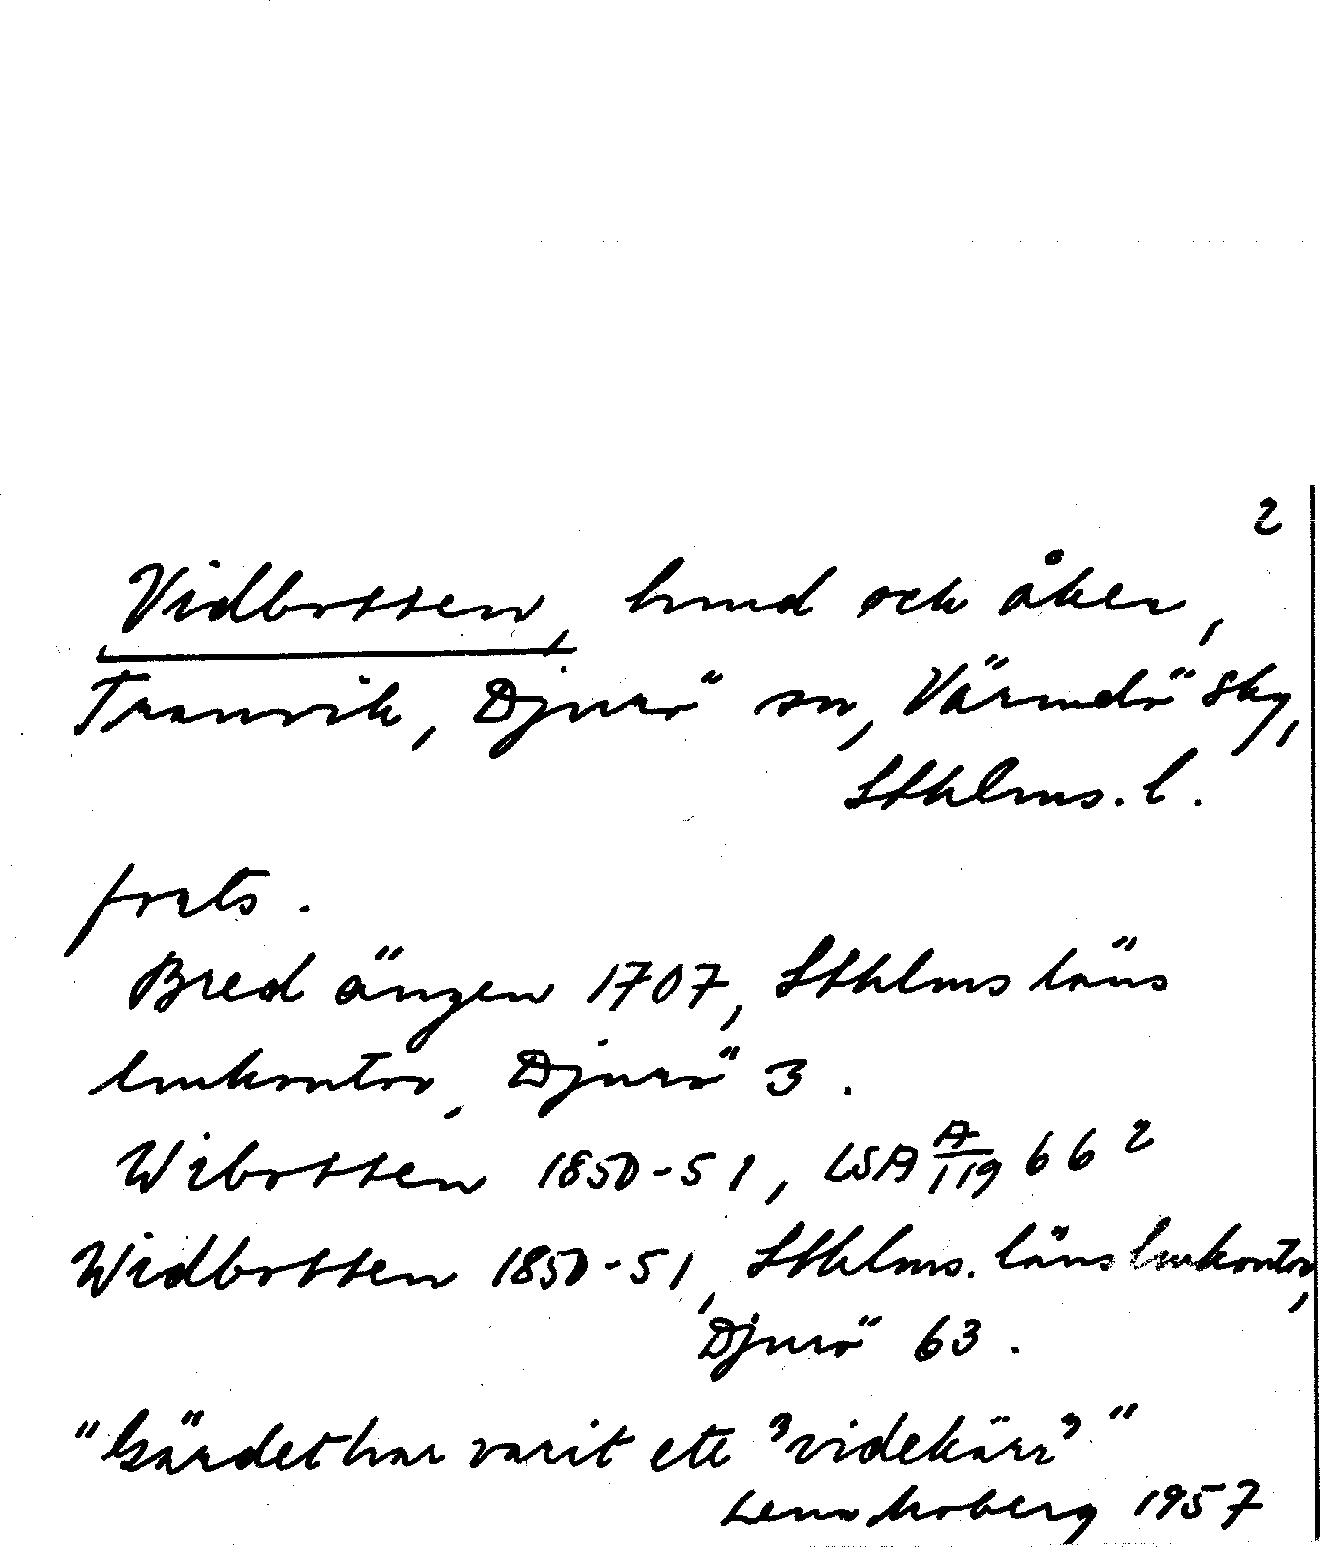 2
Vidbotten, lund och åker,
Tranvik, Djurö sn, Värmdö skg,
Sthlms. l.
forts.
Bred ängen 1707, Sthlms läns
lmkontor, Djurö 3.
Wibotten 1850-51, LSA A/119 66²
Widbotten 1850-51, Sthlms. läns lmkontor,
Djurö 63.
"Gärdet har varit ett 'videkärr'"
Lena Moberg 1957